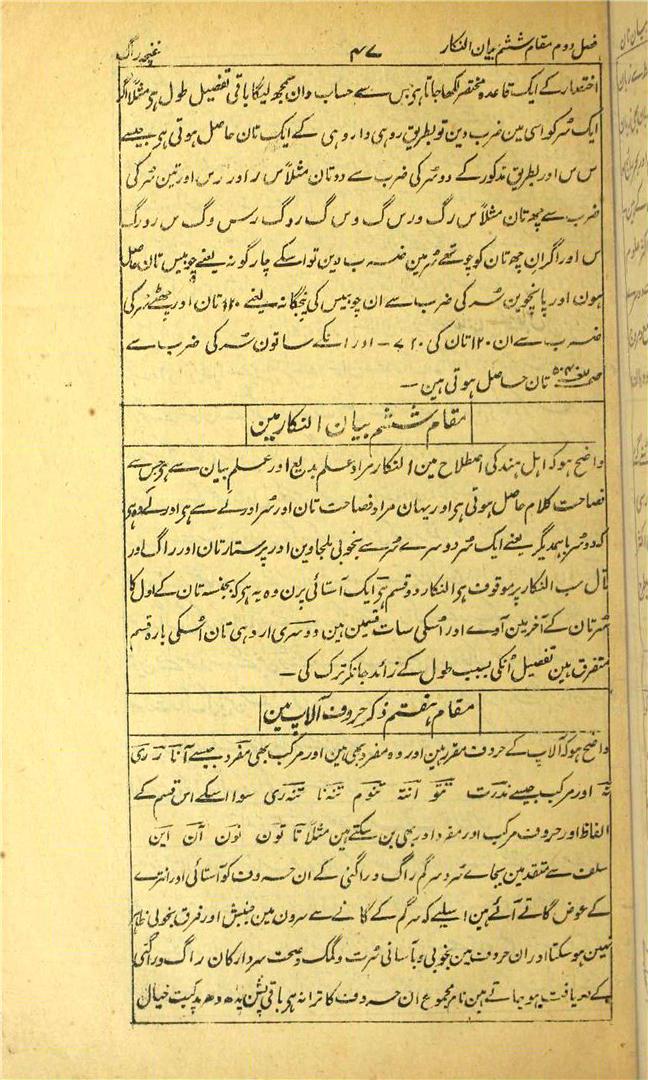 فصل دوم مقام ششم بیان النکار ۴۷ غنچہ راگ
اختصار کے ایک قاعدہ مختصر لکھا جاتا ہی جس سے حساب دان سمجھ لیگا باقی تفصیل طول ہی مثلاً اگر
ایک سُر کو اسی مین ضرب دین تو بطریق روہی دا روہی کے ایک تان حاصل ہوتی ہی جیسے
س س اور بطریق مذکور کے دو سُر کی ضرب سے دو تان مثلاً س ر اور ر س اور تین سُر کی
ضرب سے چھ تان مثلاً س ر گ و ر س گ و س گ ر و گ ر س و گ س ر و ر گ
س اور اگر ان چھ تان کو چوتھے سُر مین ضرب دین تو اسکے چار گونہ یعنے چوبیس تان حاصل
ہون اور پانچوین سُر کی ضرب سے ان چوبیس کی پنجگانہ یعنے ۱۲۰ تان اور چھٹے سُر کی
ضرب سے ان ۱۲۰ تان کی ۷۲۰ ۔ اور انکے ساتون سُر کی ضرب سے
۵۰۴۰ تان حاصل ہوتی ہین ۔
مقام ششم بیان النکار مین
واضح ہو کہ اہل ہند کی اصطلاح مین النکار مراد علم بدیع اور علم بیان سے ہی جس سے
فصاحت کلام حاصل ہوتی ہی اور یہان مراد فصاحت تان اور سُر اور لے سے ہی اور لے وہ ہی
کہ دو سُر باہمدیگر یعنے ایک سُر دوسرے سُر سے بخوبی ملجاوین اور پرستار تان اور راگ اور
تال سب النکار پر موقوف ہی النکار دو قسم ہی ایک آستائی پرن وہ یہ ہی کہ بجنسہ تان کے اول کا
سُر تان کے آخر مین آوے اور اسکی سات قسمین ہین دوسری اردہی تان اسکی بارہ قسم
متفرق ہین تفصیل انکی بسبب طول کے زائد جانکر ترک کی ۔
مقام ہفتم ذکر حروف آلاپ مین
واضح ہو کہ آلاپ کے حروف مقرر ہین اور وہ مفرد بھی ہین اور مرکب بھی مفرد جیسے آ نا ر ری
نہ اور مرکب جیسے ندرت تنو انتہ تنوم تنہ نا تنہ ری سوا اسکے اس قسم کے
الفاظ اور حروف مرکب اور مفرد اور بھی بن سکتے ہین مثلاً تا تون نون آن این
سلف سے متقدمین بجاے سُر و سرگم راگ و راگنی کے ان حروف کو آستائی اور انترے
کے عوض گاتے آئے ہین اسیلیے کہ سرگم کے گانے سے سرون مین جنبش اور فرق بخوبی ظاہر
نہین ہو سکتا اور ان حروف مین بخوبی و بآسانی سُرت و گمک و صحت سر ارکان راگ و راگنی
کے دریافت ہو جاتے ہین نام مجموع ان حروف کا ترانہ ہی باقی بشن پدہ دھرپد کبت خیال